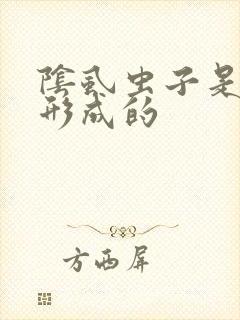 陰虱虫子是
形成的
方西屏